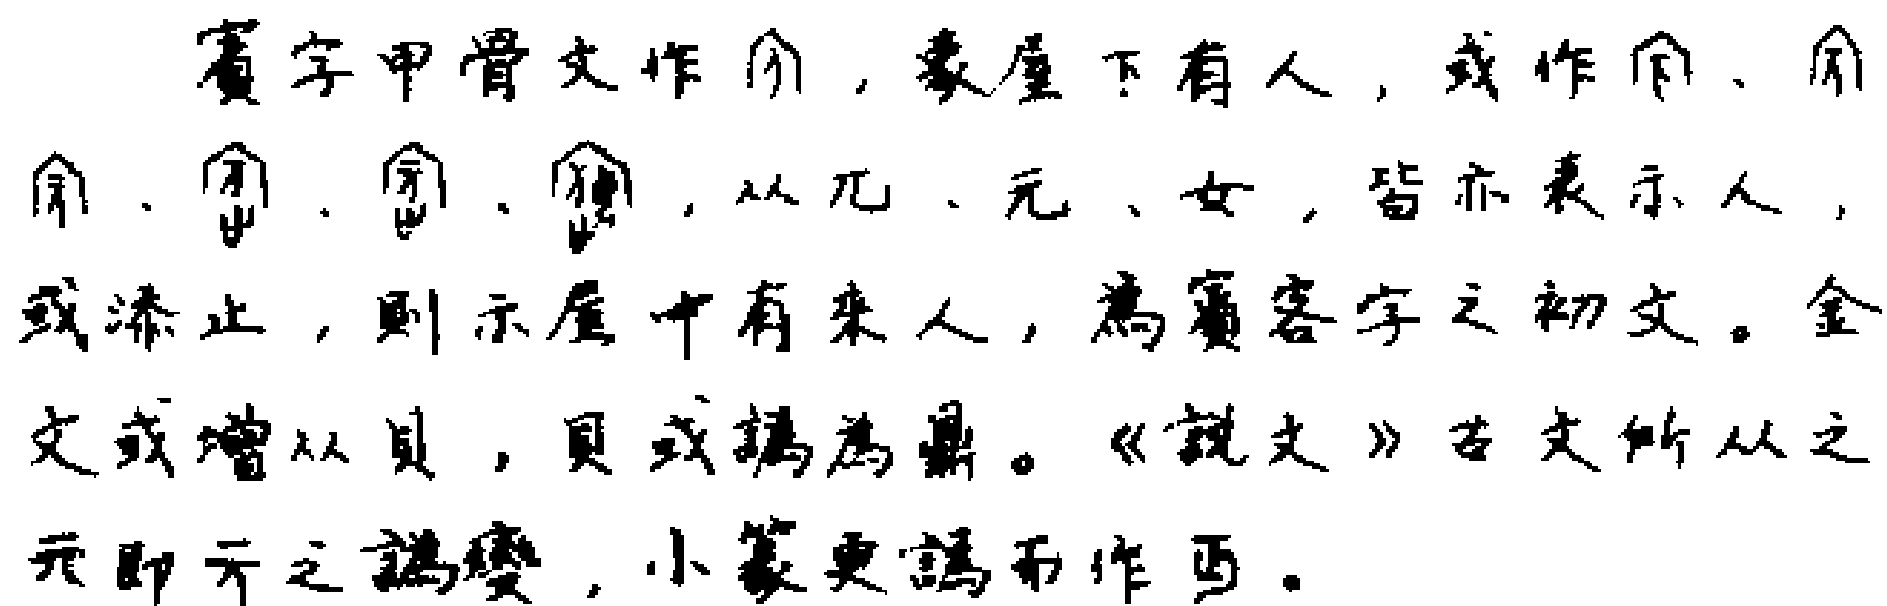 賓字甲骨文作，象屋下有人，或作、
、、、，从兀、元、女，皆亦表示人，
或添止，則示屋中有來人，為賓客字之初文。金
文或增从貝，貝或譌為鼎。《說文》古文所从之
元即亓之譌變，小篆更譌而作丏。